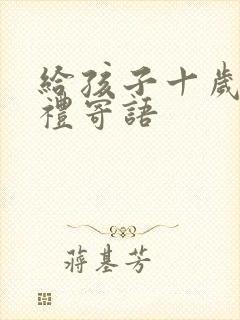 給孩子十歲
禮寄語
蔣基芳